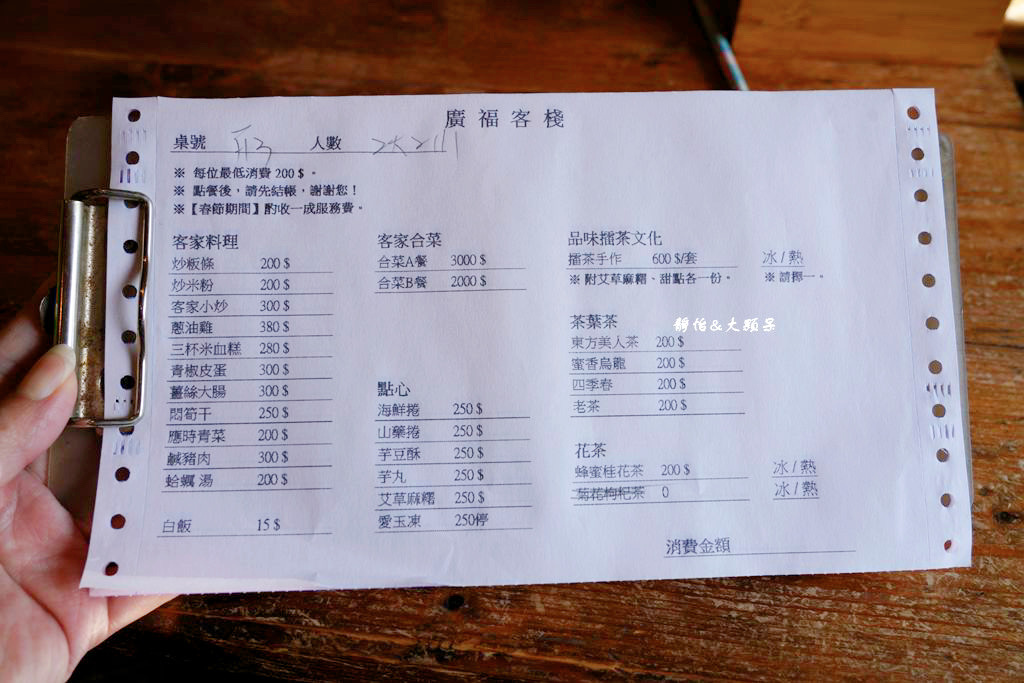 廣福客棧
桌號 人數
※ 每位最低消費 200 $。
※ 點餐後,請先結帳,謝謝您!
※【春節期間】酌收一成服務費。
客家料理
炒粄條 200 $
炒米粉 200 $
客家小炒 300 $
蔥油雞 380 $
三杯米血糕 280 $
青椒皮蛋 300 $
薑絲大腸 300 $
悶筍干 250 $
應時青菜 200 $
鹹豬肉 300 $
蛤蠣 湯 200 $
白飯 15 $
客家合菜
合菜A餐 3000 $
合菜B餐 2000 $
點心
海鮮捲 250 $
山藥捲 250 $
芋豆酥 250 $
芋丸 250 $
艾草麻糬 250 $
愛玉凍 250停
品味擂茶文化
擂茶手作 600 $/套 冰 / 熱
※ 附艾草麻糬、甜點各一份。 ※ 請擇一。
茶葉茶
靜怡&大顆呆
東方美人茶 200 $
蜜香烏龍 200 $
四季春 200 $
老茶 200 $
花茶
蜂蜜桂花茶 200 $ 冰 / 熱
菊花枸杞茶 0 冰 / 熱
消費金額